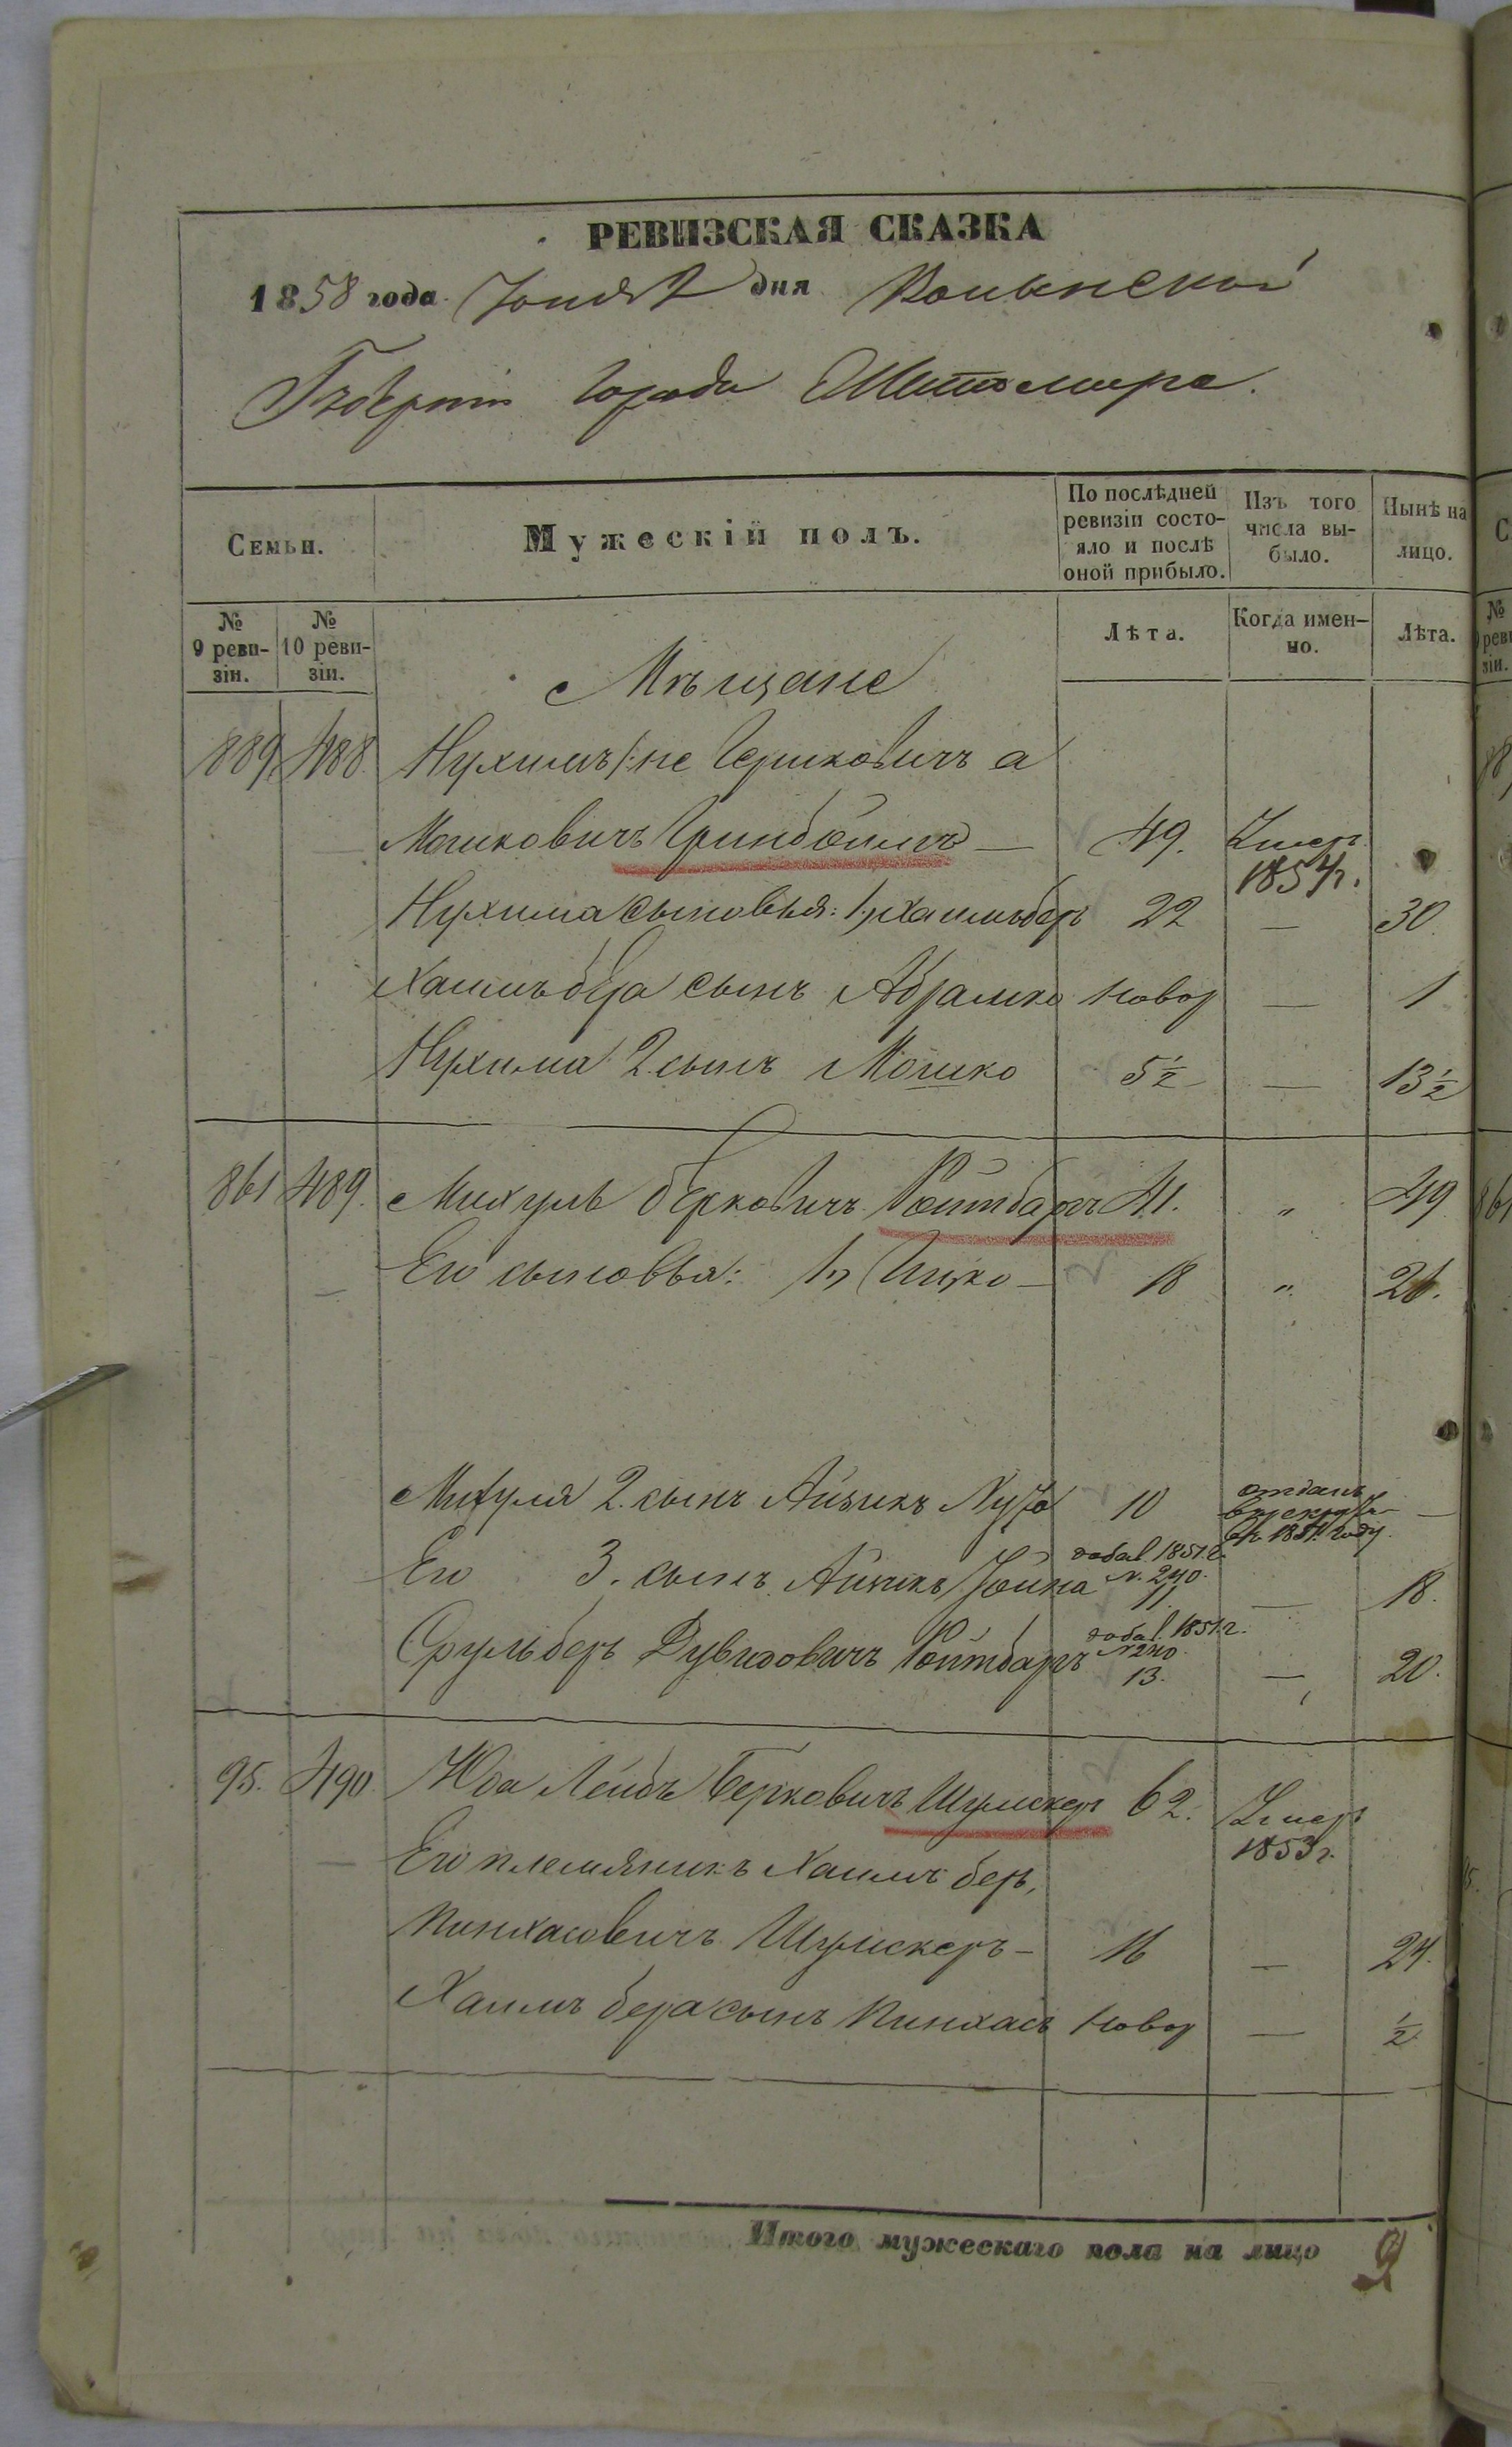 РЕВИЗСКАЯ СКАЗКА
1858 года Іюня дня Волынской
Губерніи Города Житомира.
Семьи.
Мужескій полъ.
По послѣдней ревизіи состояло и послѣ оной прибыло.
Изъ того числа выбыло.
Нынѣ на лицо.
№ 9 ревизіи.
№ 10 ревизіи.
Лѣта.
Когда именно.
Лѣта.
Мѣщане
889 488. Нухимъ /: не Гершковичъ а
Мошковичъ Гринбоимъ — 49. Умеръ 1854 г.
Нухима сыновья: 1, Хаимъ беръ 22 — 30
Хаимъ бера сынъ Абрамко новор — 1
Нухима 2 сынъ Мошко 5 1/2 — 13 1/2
861 489. Михуль Берковичъ Ройтбаръ 41. „ 49
Его сыновья: 1, Ицко — 18 „ 26.
Михуля 2. сынъ Айзикъ 10 отданъ въ рекруты въ 1851 году. —
Его 3. сынъ Айзикъ Іойна добав. 1851 г. N. 240. 11. — 18.
Срульберъ Дувидовичъ Ройтбаръ добав. 1851 г. N 240 13. — 20.
95. 490. Юда Лейбъ Берковичъ Шумскеръ 62. Умеръ 1853 г.
Его племяникъ Хаимъ беръ,
Пинхасовичъ Шумскеръ — 16 — 24.
Хаимъ бера сынъ Пинхасъ новор — 1/2
Итого мужескаго пола на лицо 9